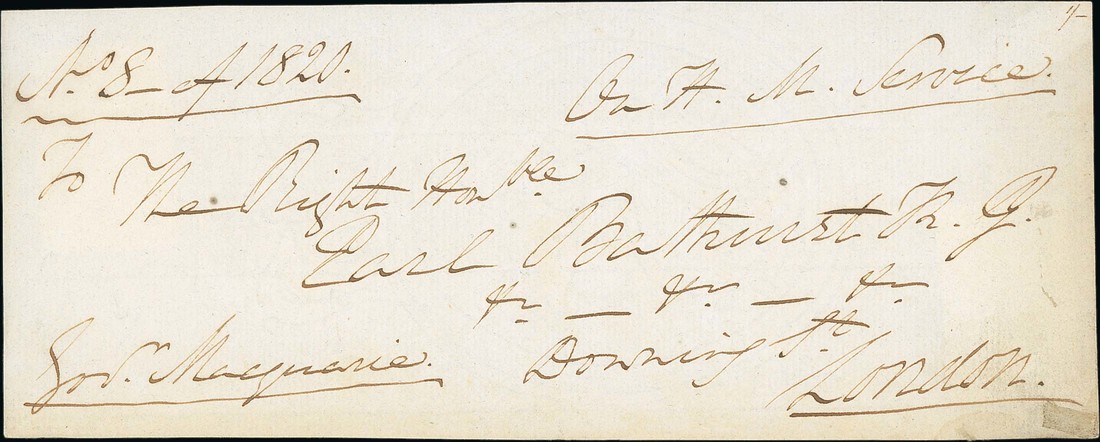 4/-
No 8 - of 1820.
On H. M. Service.
To The Right Honble
Earl Bathurst K. G.
&c — &c — &c
Downing St.
London.
Govr. Macquarie.